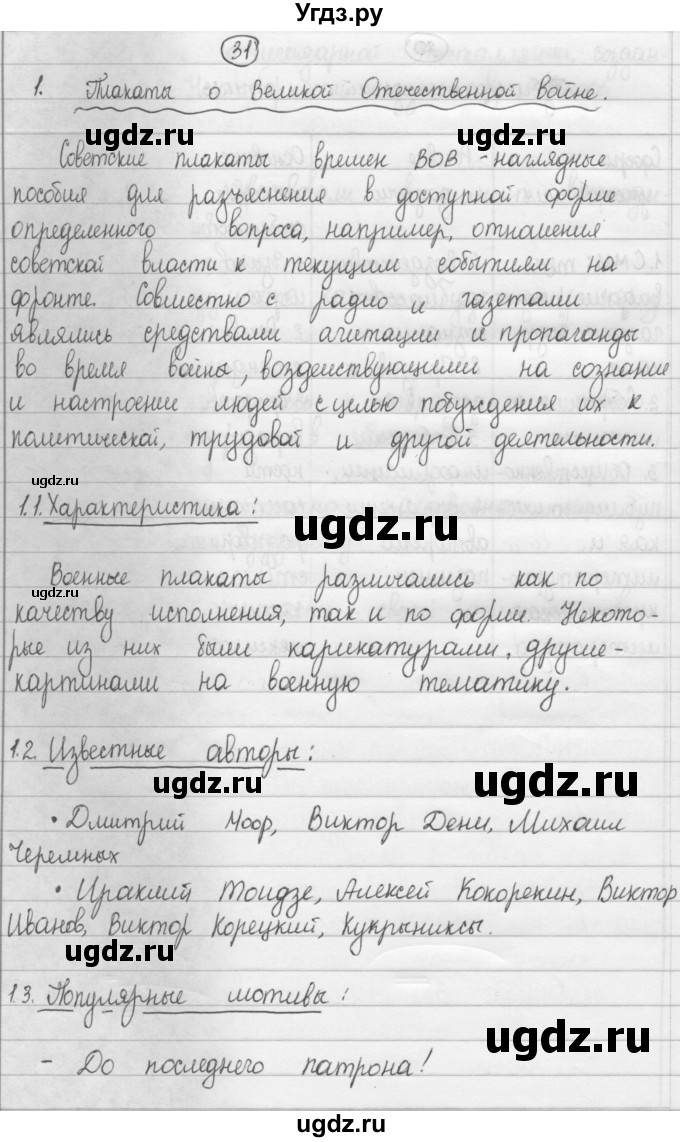 Угдз.ру
31
1. Плакаты о Великой Отечественной войне.
ugdz.ru ugdz.ru
Советские плакаты времен ВОВ - наглядные
пособия для разъяснения в доступной форме
определенного вопроса, например, отношения
советской власти к текущим событиям на
фронте. Совместно с радио и газетами
являлись средствами агитации и пропаганды
во время войны, воздействующими на сознание
и настроение людей с целью побуждения их к
политической, трудовой и другой деятельности.
ugdz.ru
1.1. Характеристика:
ugdz.ru
Военные плакаты различались как по
качеству исполнения, так и по форме. Некото-
рые из них были карикатурами, другие -
картинами на военную тематику.
1.2. Известные авторы:
ugdz.ru ugdz.ru
• Дмитрий Моор, Виктор Дени, Михаил
Черемных
• Ираклий Тоидзе, Алексей Кокорекин, Виктор
Иванов, Виктор Корецкий, Кукрыниксы.
ugdz.ru
1.3. Популярные мотивы:
ugdz.ru
- До последнего патрона!
ugdz.ru